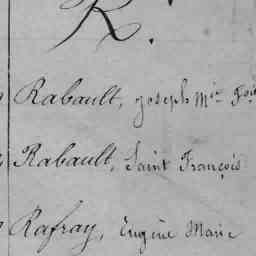 R.
Rabault, Joseph Mie
Rabault, Saint François
Rafray, Eugène Marie